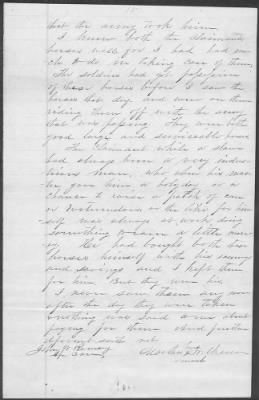 that the army took him.
I knew both the claimants
horses well for I had had mu
ch to do in taking care of them.
The soldiers had got possession
of these horses before I saw the
horses that day and were on them
riding them off with the army
that was passing. They were both
good large and serviceable horses
The Claimant while a slave
had always been a very indus
trious man, who when his mas
ter gave him a holyday or a
chance to raise a patch of corn
or Watermelons or the like for him
self was always at work doing
something to earn a little mon
ey. He had bought both these
horses himself with his earnings
and savings and I kept them
for him. But they were his
I never saw them any more
after the day they were taken
nothing was said to me about
paying for them And further
deponent saith not.
John
his
mark